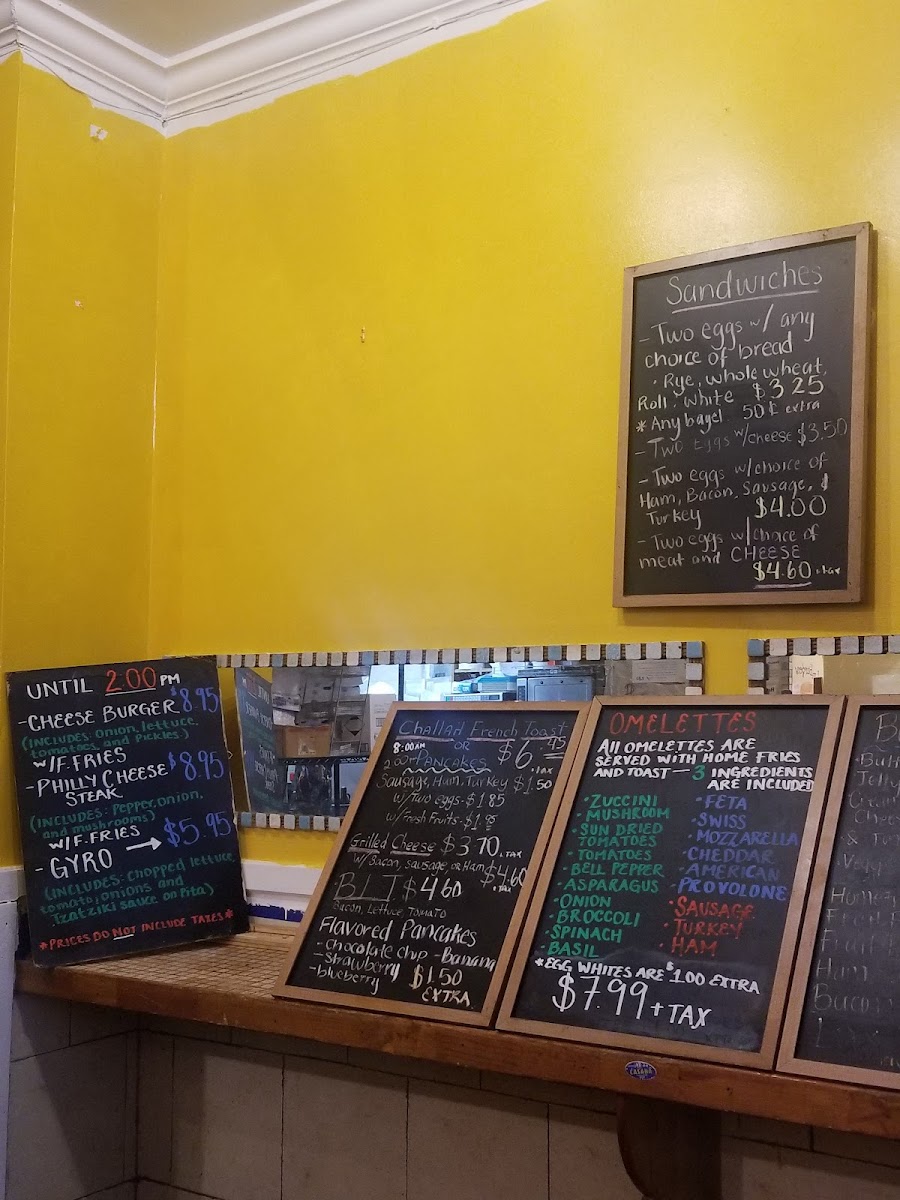 Sandwiches
- Two eggs w/ any
choice of bread
· Rye, whole wheat,
Roll, white $3.25
*Any bagel 50¢ extra
- Two Eggs w/cheese $3.50
- Two eggs w/choice of
Ham, Bacon, Sausage, &
Turkey $4.00
- Two eggs w/choice of
meat and CHEESE
$4.60 +tax
UNTIL 2:00 PM
-CHEESE BURGER $8.95
(INCLUDES: onion, lettuce,
tomatoes, and Pickles)
W/F. FRIES
-PHILLY CHEESE $8.95
STEAK
(INCLUDES: Pepper, onion,
and mushrooms)
W/F. FRIES
-GYRO → $5.95
(INCLUDES: Chopped lettuce
tomato, onions and
Tzatziki sauce on Pita)
*PRICES DO NOT INCLUDE TAXES*
Challad French Toast
8:00AM OR $6.95
2:00PM PANCAKES +TAX
Sausage, Ham, Turkey $1.50
w/Two eggs-$1.85
w/Fresh Fruits-
Grilled Cheese - $3.70 +TAX
W/Bacon, sausage, or Ham $4.60
+TAX
BLT $4.60
Bacon, Lettuce, Tomato
Flavored Pancakes
-Chocolate chip -Banana
-Strawberry $1.50
-blueberry EXTRA
OMELETTES
All OMELETTES ARE
SERVED WITH HOME FRIES
AND TOAST — 3 INGREDIENTS
ARE INCLUDED
·ZUCCINI ·FETA
·MUSHROOM ·SWISS
·SUN DRIED ·MOZZARELLA
TOMATOES ·CHEDDAR
·TOMATOES ·AMERICAN
·BELL PEPPER ·PROVOLONE
·ASPARAGUS ·SAUSAGE
·ONION ·TURKEY
·BROCCOLI ·HAM
·SPINACH
·BASIL
*EGG WHITES ARE $1.00 EXTRA
$7.99 + TAX
Ham
Bacon